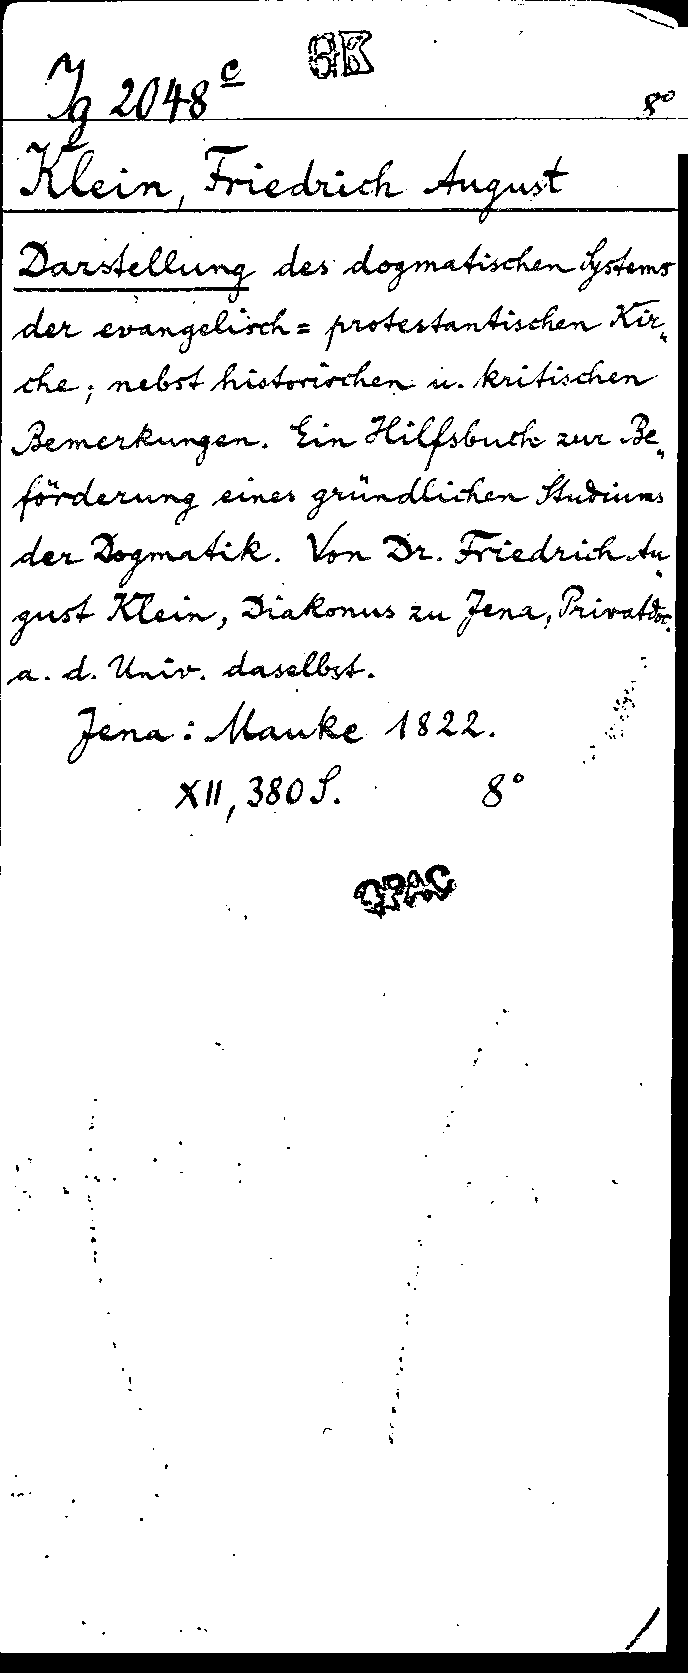 BK
Jg 2048 c
8°
Klein, Friedrich August
Darstellung des dogmatischen Systems
der evangelisch= protestantischen Kir„
che; nebst historischen u. kritischen
Bemerkungen. Ein Hilfsbuch zur Be„
förderung eines gründlichen Studiums
der Dogmatik. Von Dr. Friedrich Au„
gust Klein, Diakonus zu Jena, Privatdoc.
a. d. Univ. daselbst.
Jena: Mauke 1822.
XII, 380 S. 8°
OPAC